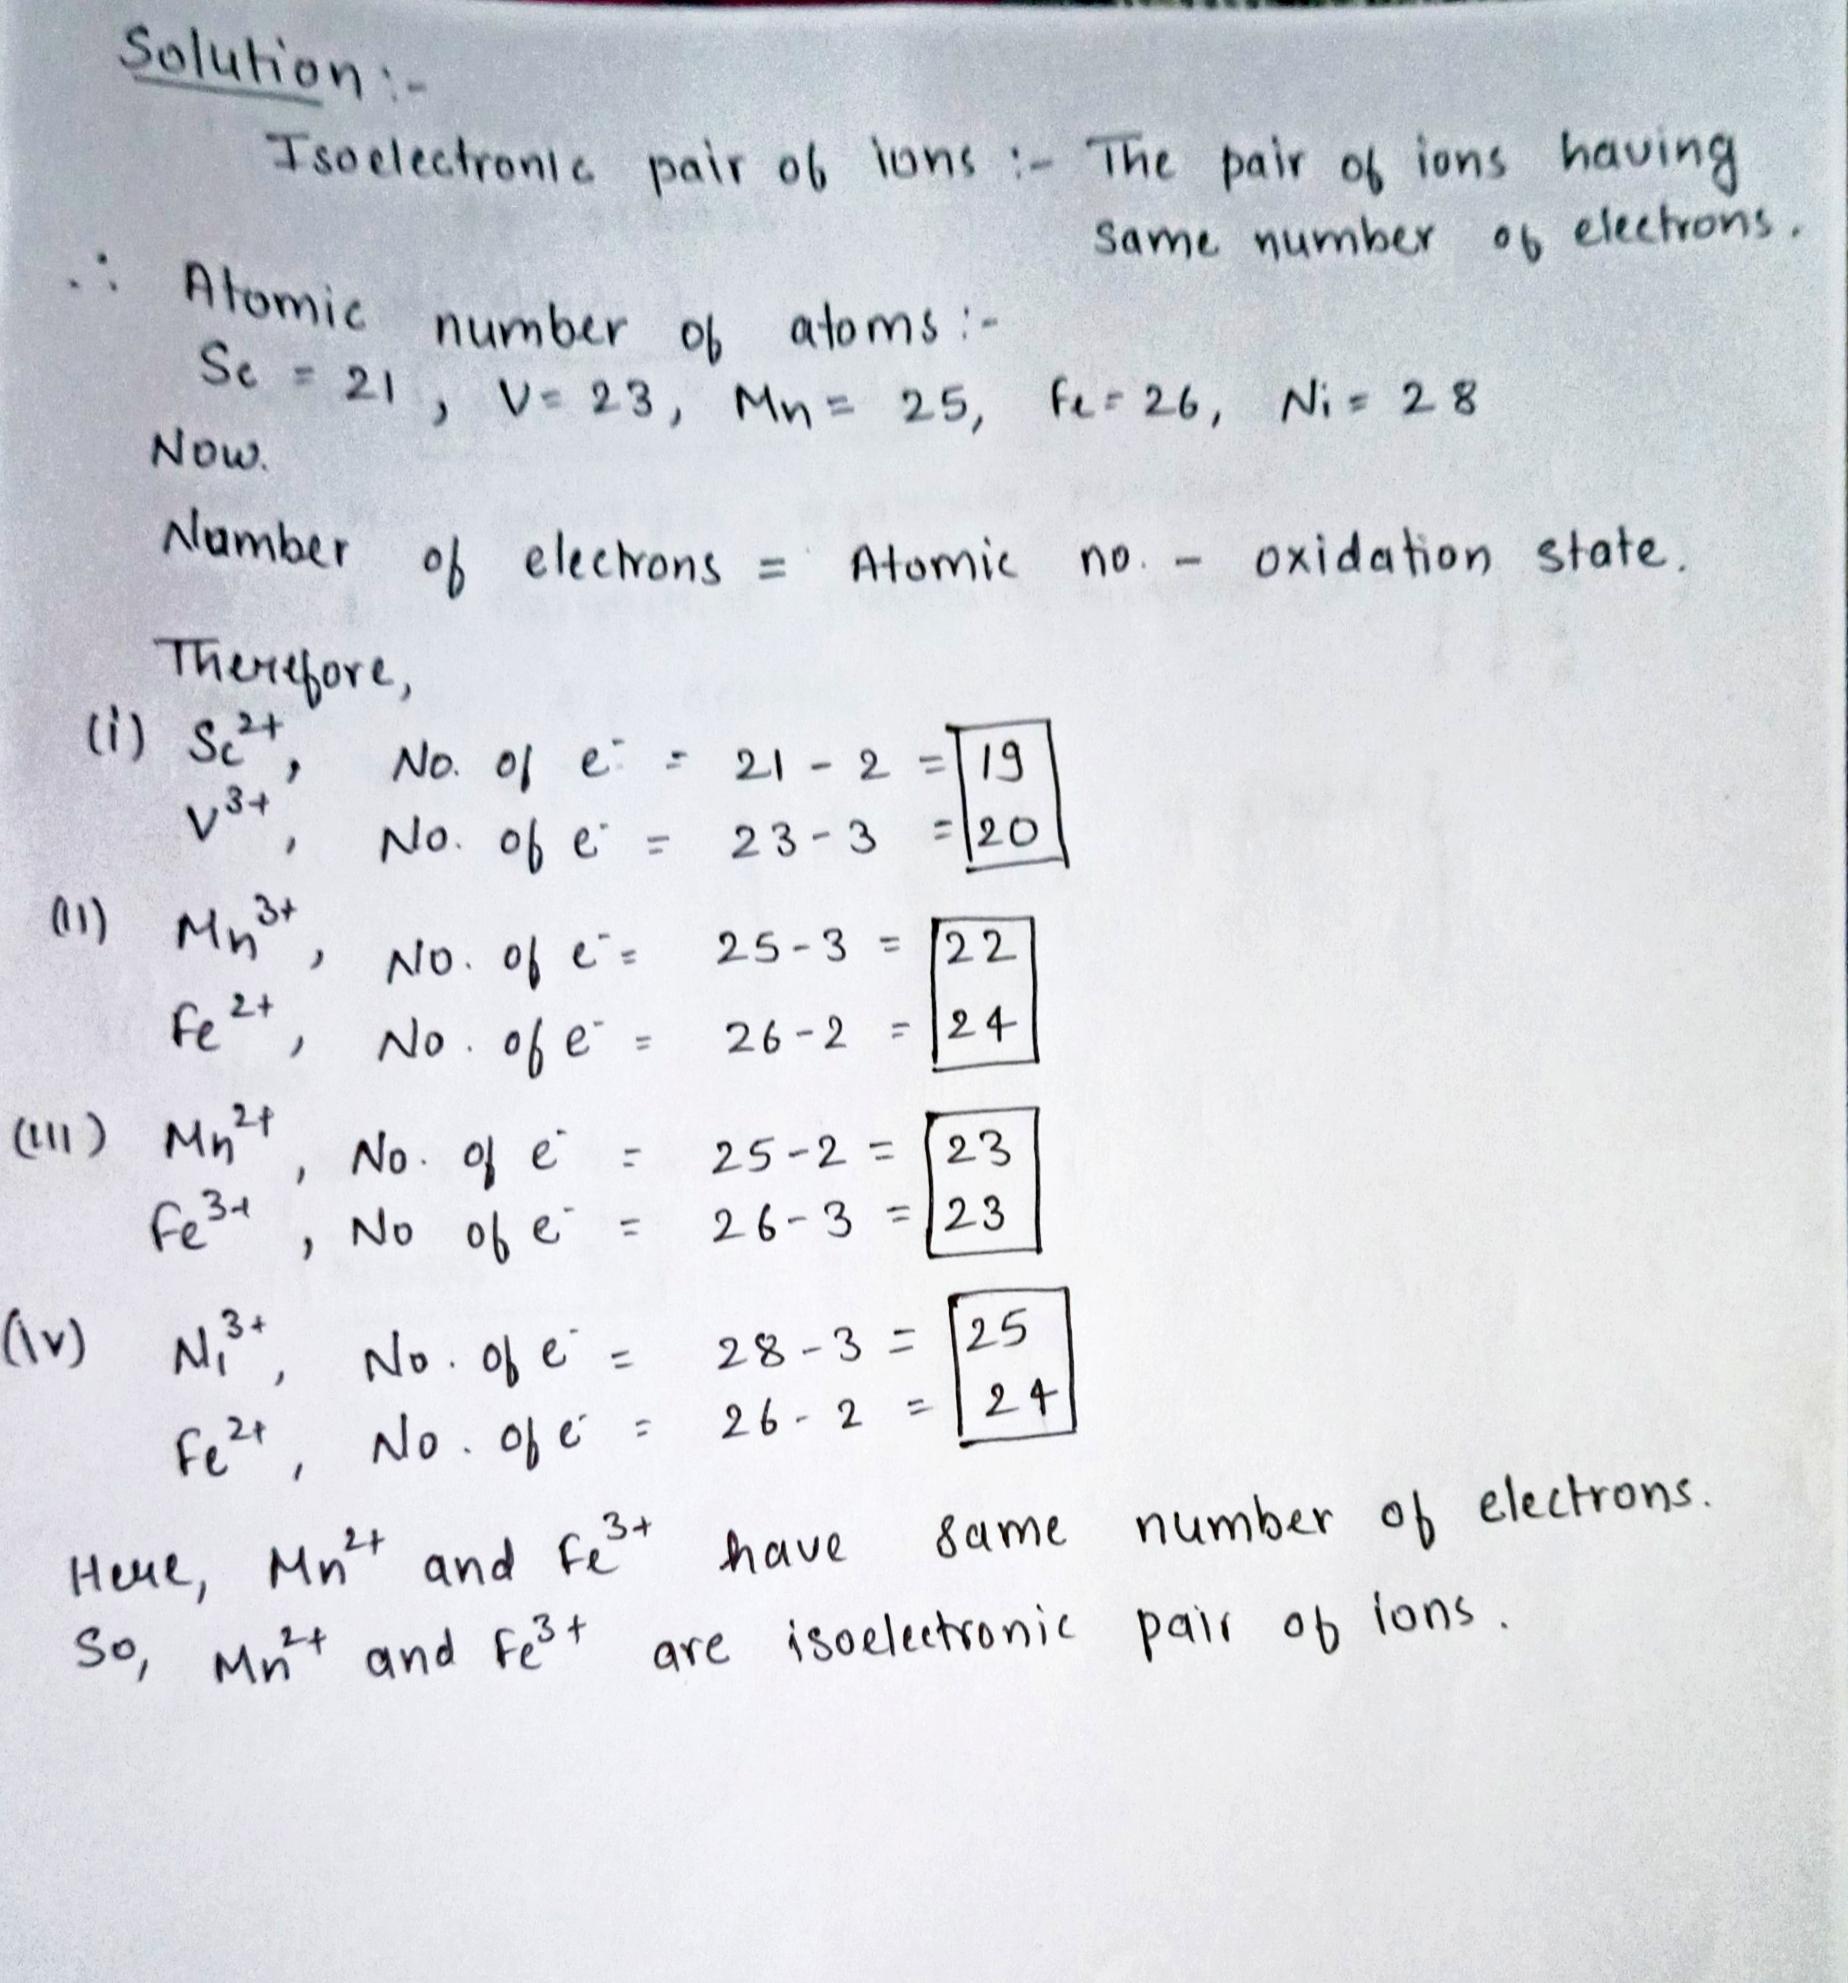 Solution :-
Isoelectronic pair of ions :- The pair of ions having
same number of electrons.
∴ Atomic number of atoms :-
Sc = 21, V = 23, Mn = 25, Fe = 26, Ni = 28
Now.
Number of electrons = Atomic no. - oxidation state.
Therefore,
(i) Sc²⁺, No. of e⁻ = 21 - 2 = 19
V³⁺, No. of e⁻ = 23 - 3 = 20
(ii) Mn³⁺, No. of e⁻ = 25 - 3 = 22
Fe²⁺, No. of e⁻ = 26 - 2 = 24
(iii) Mn²⁺, No. of e⁻ = 25 - 2 = 23
Fe³⁺, No of e⁻ = 26 - 3 = 23
(iv) Ni³⁺, No. of e⁻ = 28 - 3 = 25
Fe²⁺, No. of e⁻ = 26 - 2 = 24
Here, Mn²⁺ and Fe³⁺ have same number of electrons.
So, Mn²⁺ and Fe³⁺ are isoelectronic pair of ions.